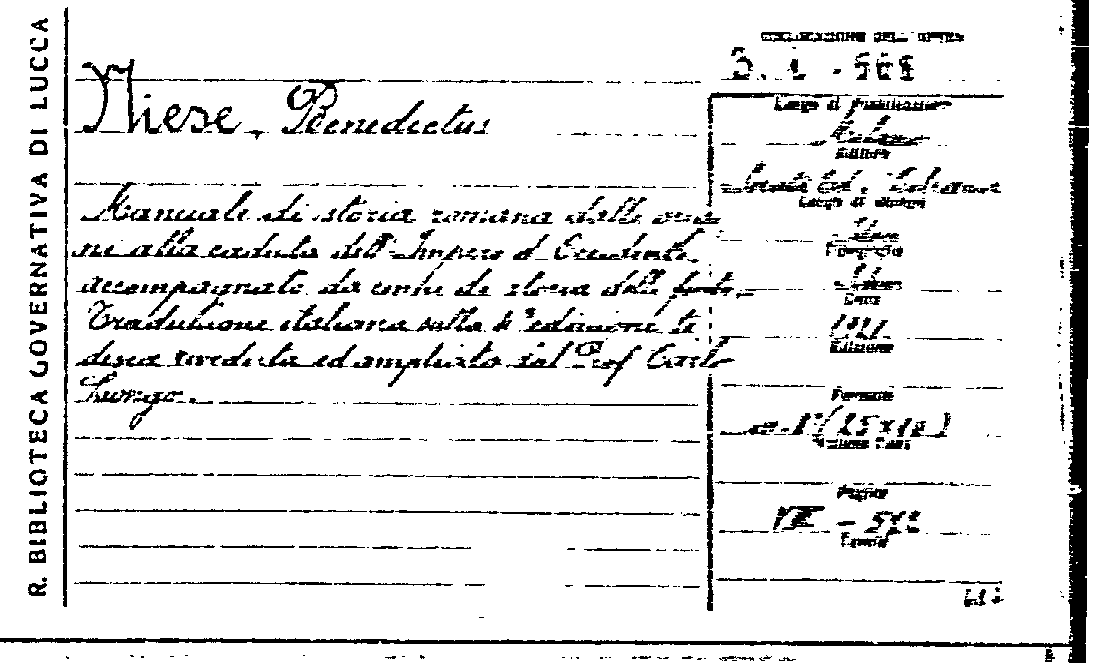 R. BIBLIOTECA GOVERNATIVA DI LUCCA
COLLOCAZIONE DELL'OPERA
Niese, Benedictus
Manuale di storia romana dalle origi-
ni alla caduta dell'Impero d'Occidente
accompagnato da cenni di storia delle fonti.
Traduzione italiana sulla 4ª edizione te
desca riveduta ed ampliata dal Prof Carlo
Longo.
Luogo di Pubblicazione
Milano
Editore
Società Ed. Libraria
Luogo di stampa
Tipografia
Data
1921
Edizione
Formato
in-8° (25x16)
Volume Parti
Pagine
VIII -
Tavole